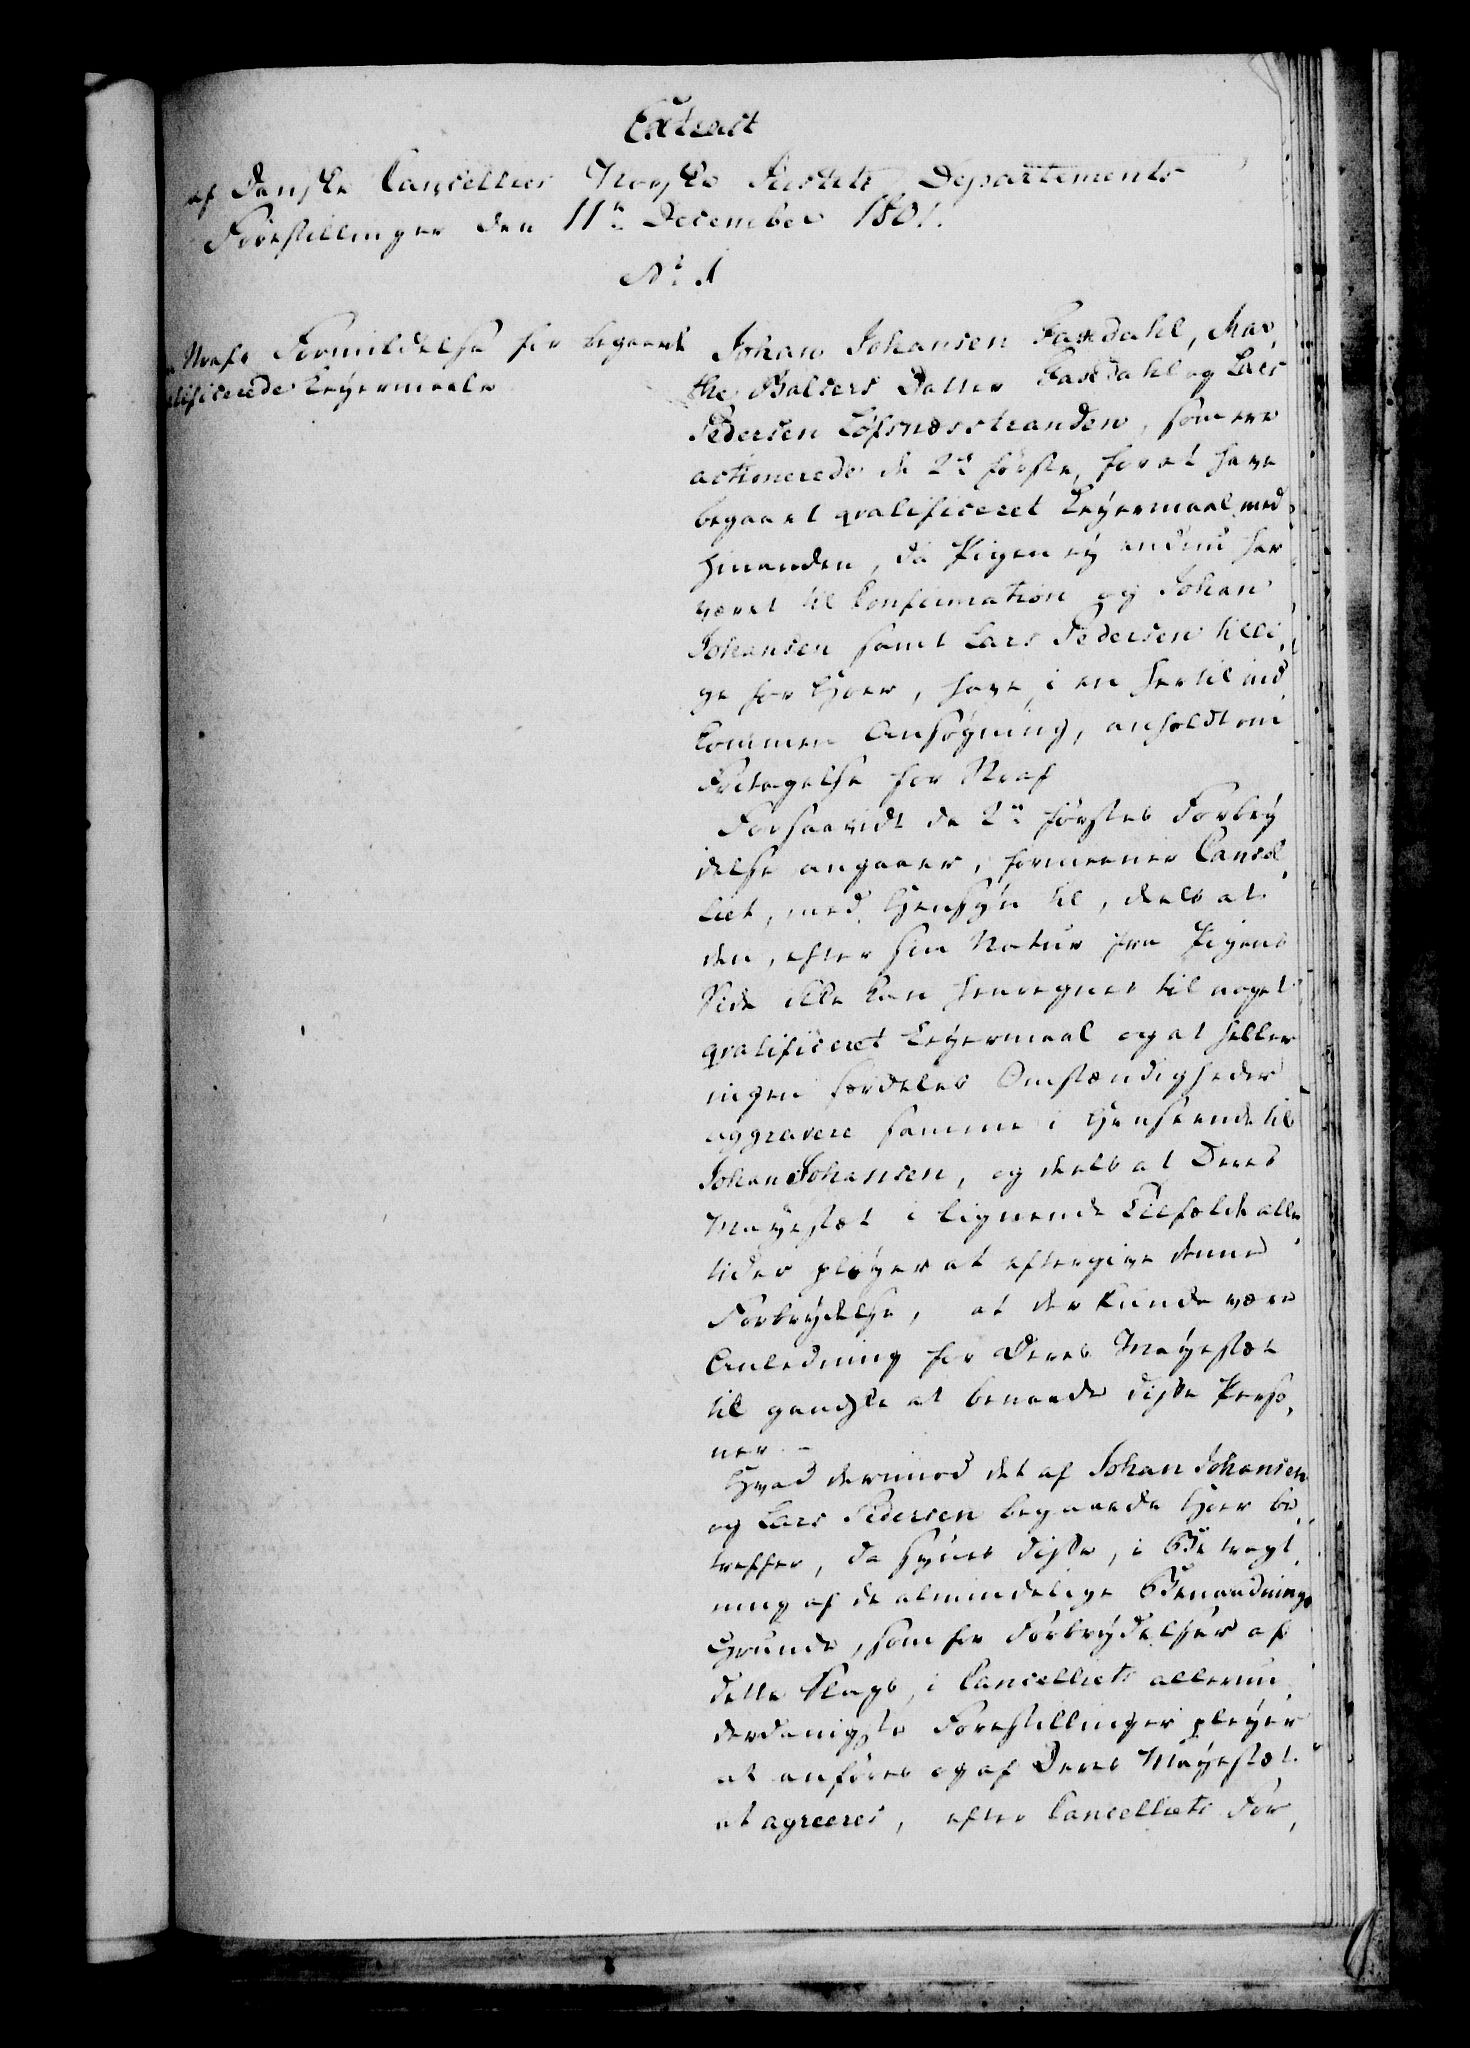 Extract
af Danske Cancellies Norske Justits Departements
Forestillinger den 11te December 1801.
No. 1
Straffs Formildelse for begaaet
qvalificerede Leyermaale
Johan Johansen Faxdahl, Mar,
the Balsers Datter Faxdahl og Lars
Pedersen Löfsnæsstranden, som ere
actionerede de 2de første, for at have
begaaet qvalificeret Leyermaal med
hinanden, da Pigen ey endnu har
været til Confirmation og Johan
Johansen samt Lars Pedersen tilli,
ge for Hoer, have i en hertil ind,
kommen Ansøgning, anholdt om
Fritagelse for Straf
Forsaavidt de 2de førstes Forbry
delse angaaer, formeener Cancel,
liet, med Hensyn til, deels at
den, efter sin Natur fra Pigens
Side ikke kan henregnes til noget
qvalificeret Leyermaal og at heller
ingen særdeles Omstændigheder
aggravere samme i Henseende til
Johan Johansen, og deels at Deres
Mayestæt i lignende Tilfælde alle
tider pleyer at eftergive denne
Forbrydelse, at der kunde være
Anledning for Deres Mayestæt
til gandske at benaade disse Perso,
ner. -
Hvad derimod det af Johan Johansen
og Lars Pedersen begaaede Hoer be,
treffer, da synes disse, i Betragt,
ning af de almindelige Benaadnings
Grunde, som for Forbrydelser af
dette Slags, i Cancelliets allerun,
derdanigste Forestillinger pleyer
at anføres og af Deres Mayestæt
at agreeres, efter Cancelliets For,